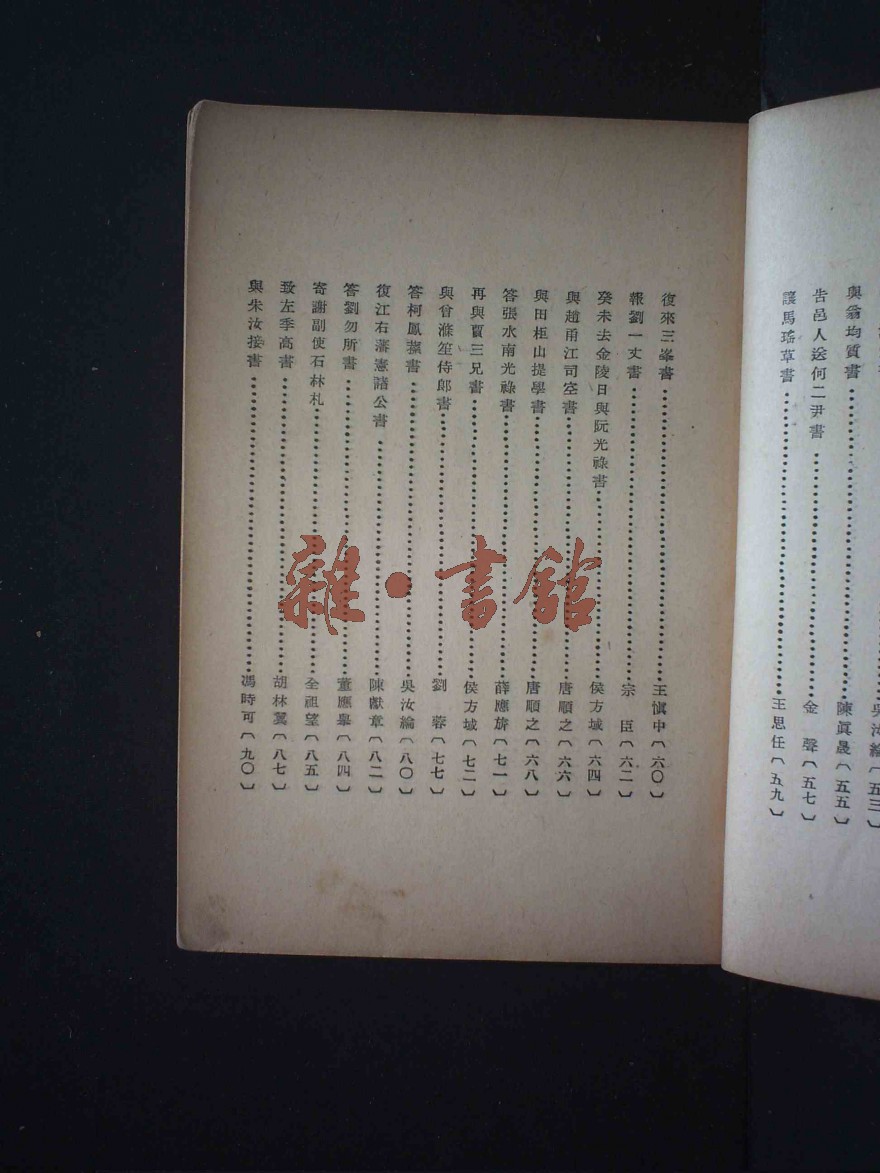 與翁均质書……陳眞晟〔五五〕
告邑人送何二尹書……金聲〔五七〕
讓馬瑤草書……王思任〔五九〕
復來三峯書……王愼中〔六〇〕
報劉一丈書……宗臣〔六二〕
癸未去金陵日與阮光祿書……侯方域〔六四〕
與趙甬江司空書……唐順之〔六六〕
與田柜山提學書……唐順之〔六八〕
答張水南光祿書……薛應旂〔七一〕
再與賈三兄書……侯方域〔七二〕
與曾滌笙侍郎書……劉蓉〔七七〕
答柯鳳蓀書……吳汝綸〔八〇〕
復江右藩憲諸公書……陳獻章〔八二〕
答劉勿所書……董應舉〔八四〕
寄謝副使石林札……全祖望〔八五〕
致左季高書……胡林翼〔八七〕
與朱汝接書……馮時可〔九〇〕
雜·書館